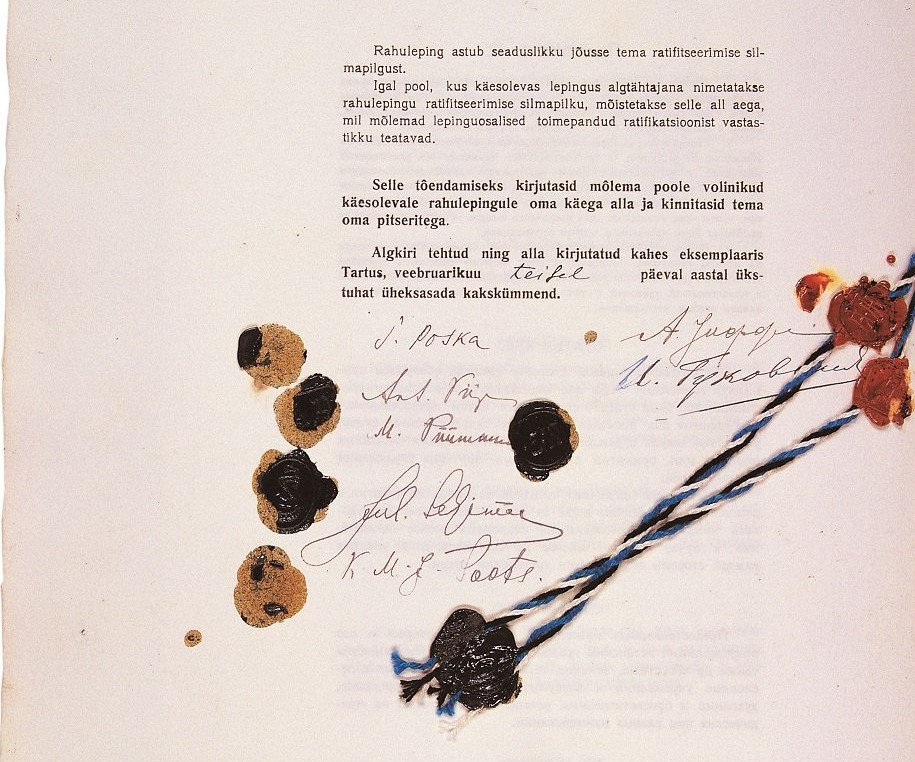 Rahuleping astub seaduslikku jõusse tema ratifitseerimise sil-
mapilgust.
Igal pool, kus käesolevas lepingus algtähtajana nimetatakse
rahulepingu ratifitseerimise silmapilku, mõistetakse selle all aega,
mil mõlemad lepinguosalised toimepandud ratifikatsioonist vastas-
tikku teatavad.
Selle tôendamiseks kirjutasid môlema poole volinikud
käesolevale rahulepingule oma käega alla ja kinnitasid tema
oma pitseritega.
Algkiri tehtud ning alla kirjutatud kahes eksemplaaris
Tartus, veebruarikuu teisel päeval aastal üks-
tuhat üheksasada kakskümmend.
J. Poska
А. Иоффе
Ant. Piip
M. Püümann
Jul. Seljamaa